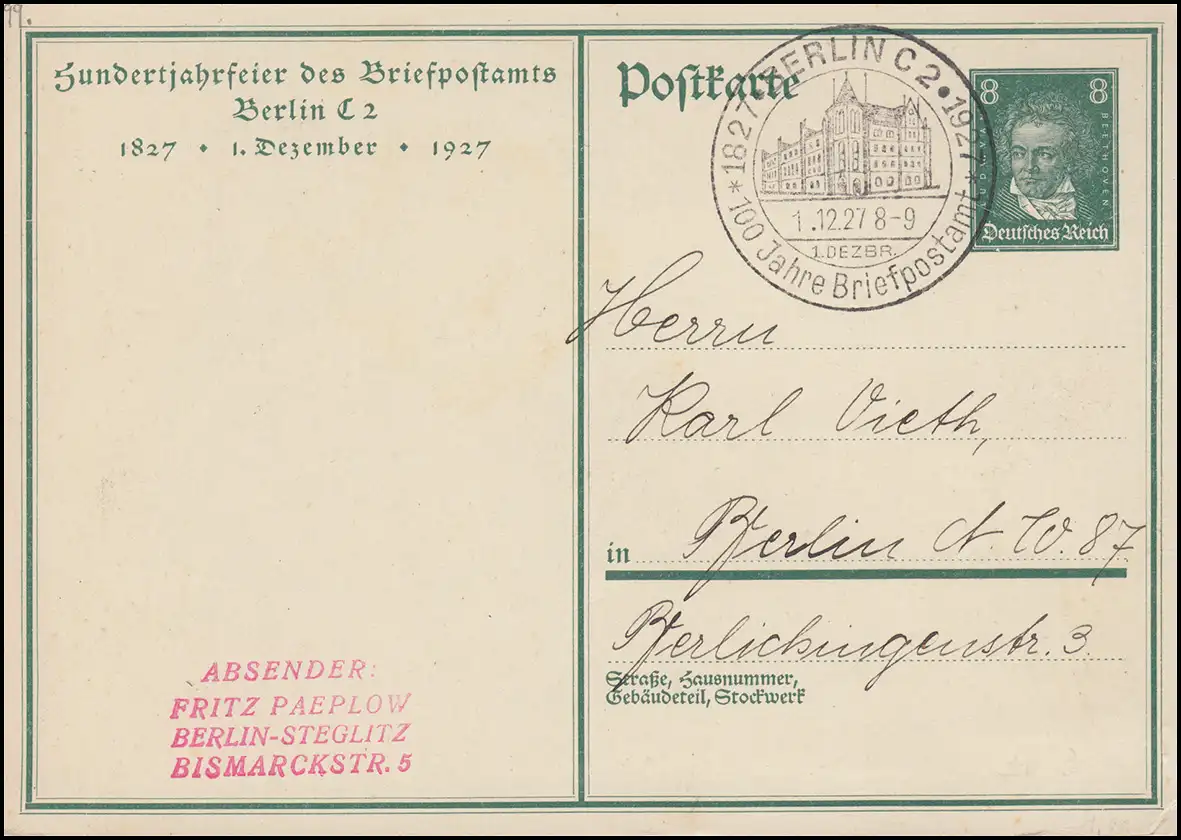 99.
Hundertjahrfeier des Briefpostamts
Berlin C 2
1827 • 1. Dezember • 1927
ABSENDER:
FRITZ PAEPLOW
BERLIN-STEGLITZ
BISMARCKSTR. 5
Postkarte
* 1827 • BERLIN C 2 • 1927 *
1.12.27 8-9
1. DEZBR.
100 Jahre Briefpostamt
8 8
BEETHOVEN
Deutsches Reich
Herrn
Karl Vieth,
in Berlin N. W. 87
Berlichingenstr. 3
Straße, Hausnummer,
Gebäudeteil, Stockwerk